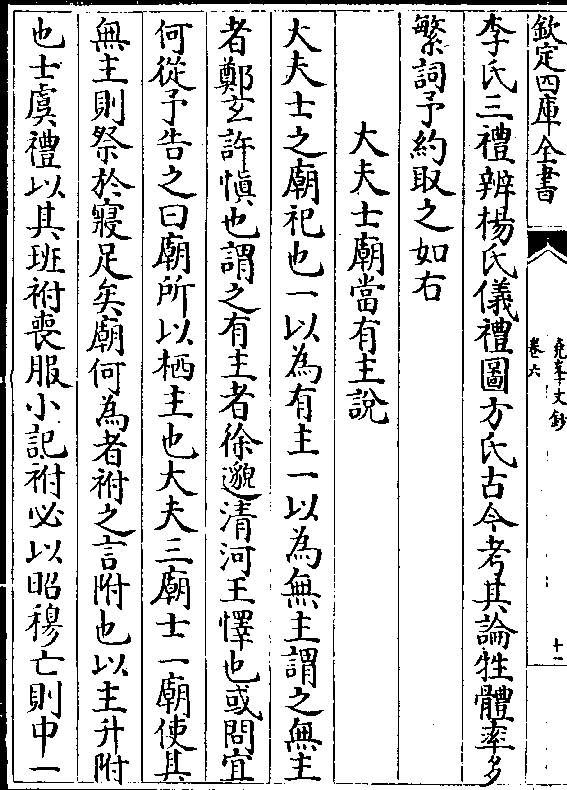 欽定四庫全書
堯峯文鈔
卷六
十一
李氏三禮辨楊氏儀禮圖方氏古今考其論牲體率多
繁詞予約取之如右
大夫士廟當有主說
大夫士之廟祀也一以為有主一以為無主謂之無主
者鄭玄許慎也謂之有主者徐邈清河王懌也或問宜
何從予告之曰廟所以栖主也大夫三廟士一廟使其
無主則祭於寢足矣廟何為者祔之言附也以主升附
也士虞禮以其班祔喪服小記祔必以昭穆亡則中一